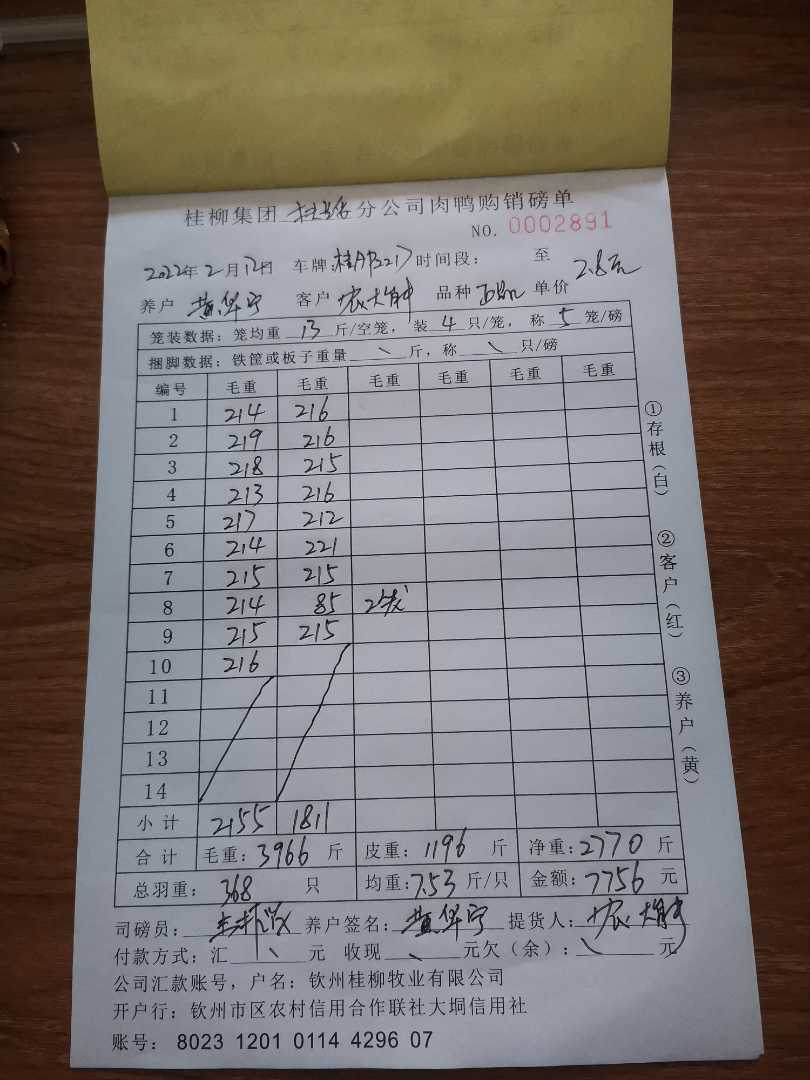 桂柳集团 分公司肉鸭购销磅单
NO. 0002891
2022年2月12日 车牌:桂AB221 时间段: 至
养户 黄华宁 客户 农大 品种 单价 2.8元
笼装数据:笼均重 13 斤/空笼, 装 4 只/笼, 称 5 笼/磅
捆脚数据:铁筐或板子重量 \ 斤,称 \ 只/磅
编号 毛重 毛重 毛重 毛重 毛重 毛重
1 214 216
2 219 216
3 218 215
4 213 216
5 217 212
6 214 221
7 215 215
8 214 85 2笼
9 215 215
10 216
11
12
13
14
小计 2155 1811
合计 毛重:3966 斤 皮重:1196 斤 净重:2770 斤
总羽重: 368 只 均重:7.53 斤/只 金额:7756 元
司磅员: 养户签名: 黄华宁 提货人: 农大
付款方式:汇 \ 元 收现 \ 元欠(余): \ 元
公司汇款账号,户名:钦州桂柳牧业有限公司
开户行:钦州市区农村信用合作联社大垌信用社
账号: 8023 1201 0114 4296 07
①存根(白)
②客户(红)
③养户(黄)